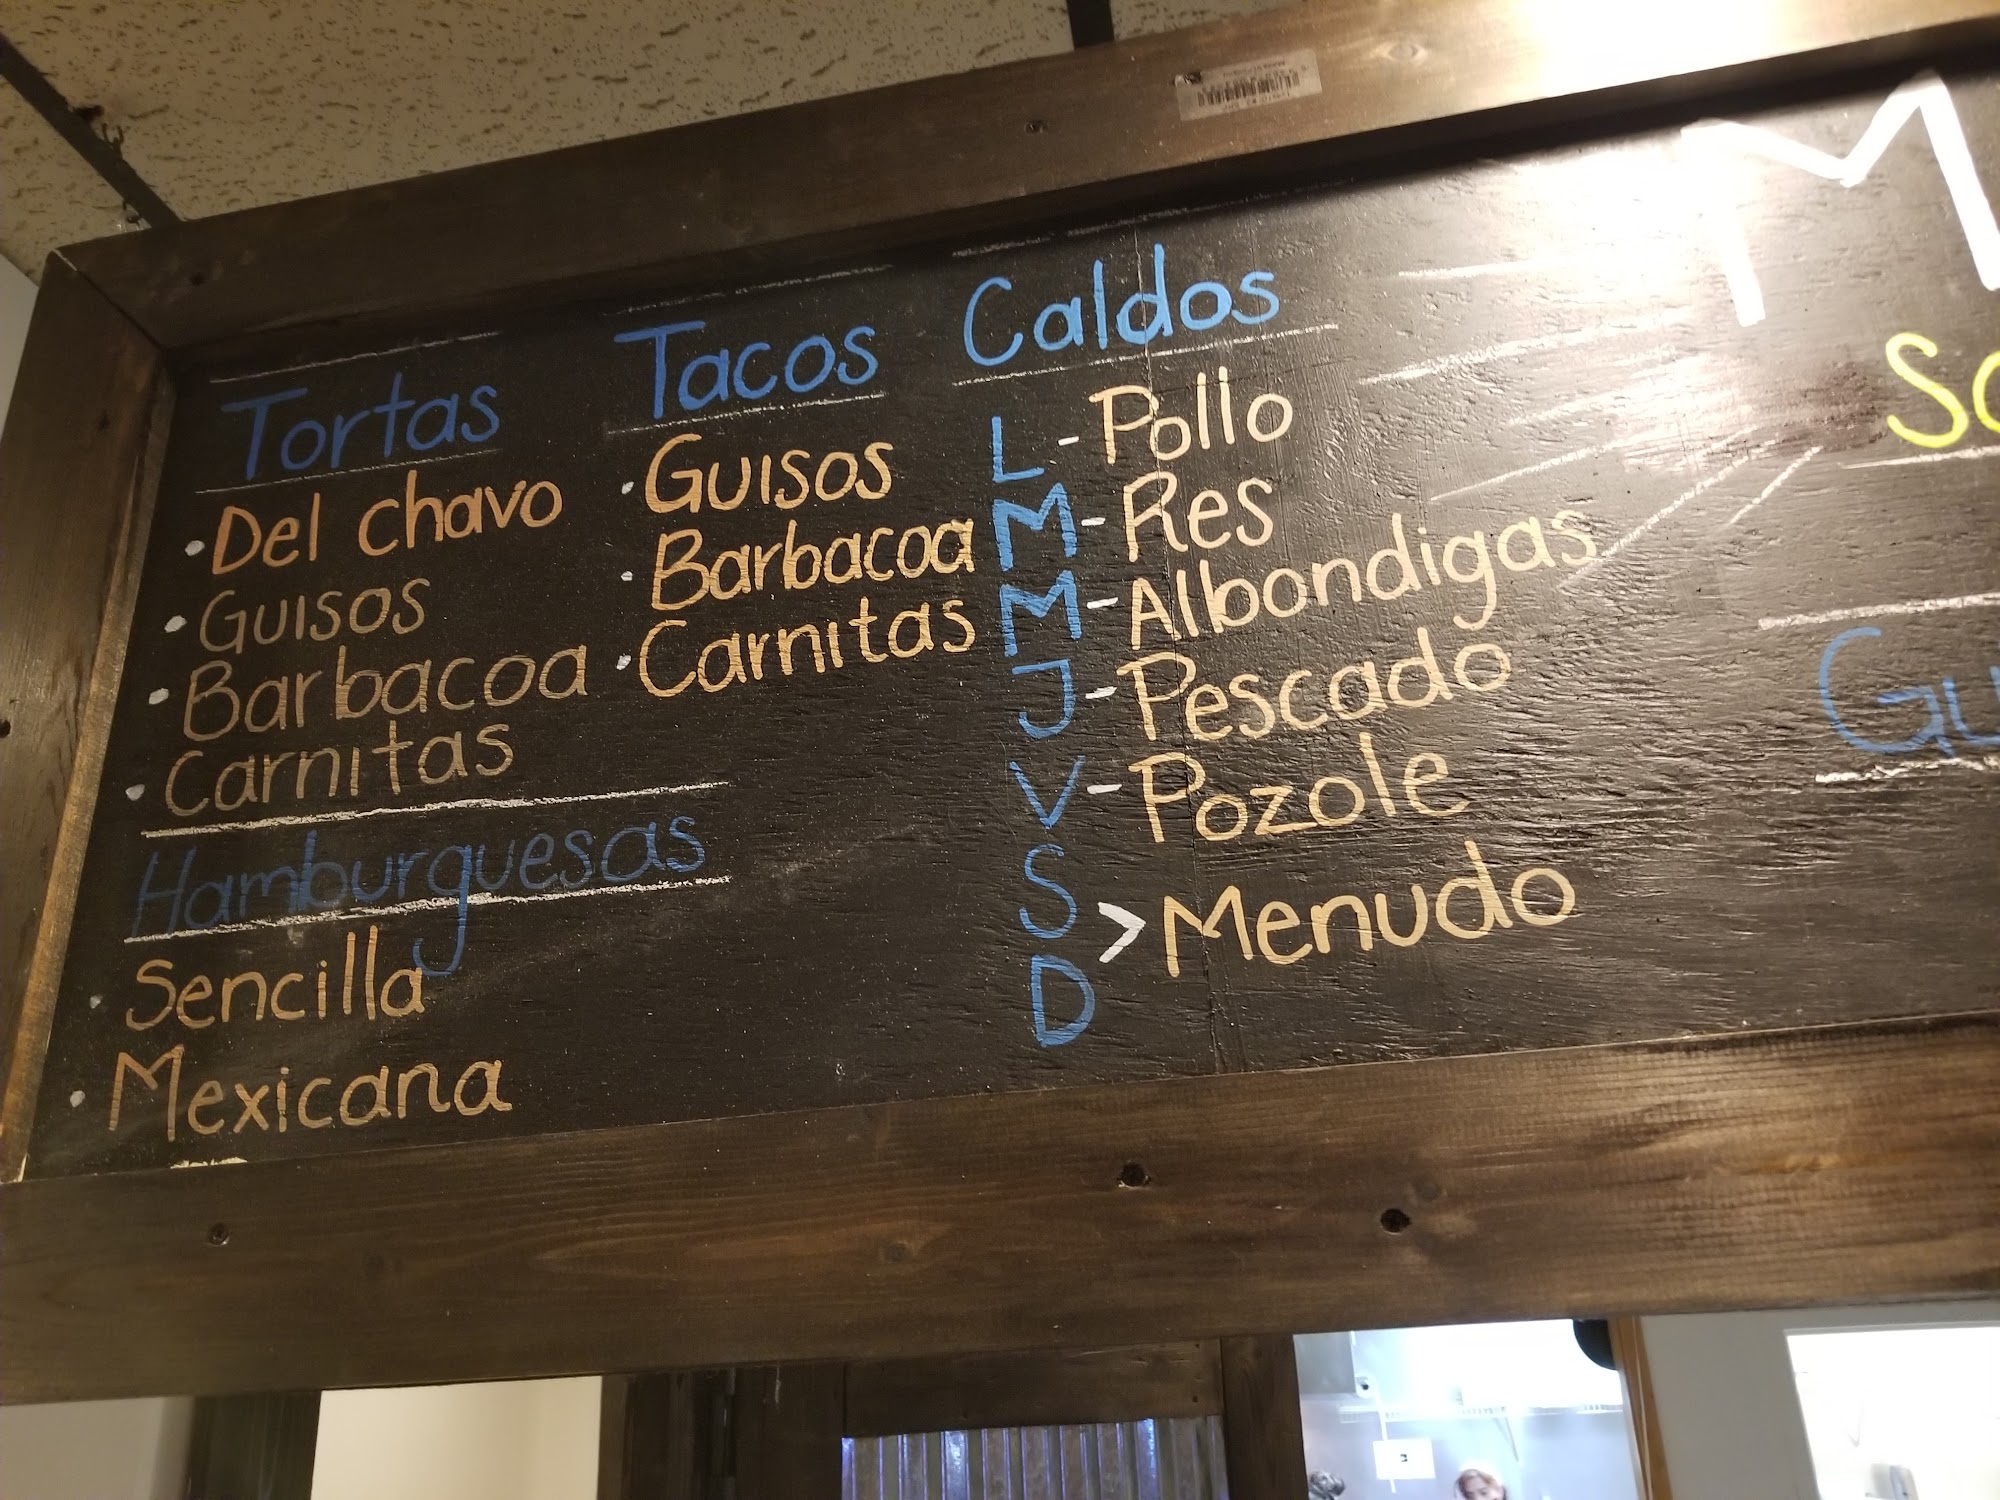 Tortas
· Del chavo
· Guisos
· Barbacoa
· Carnitas
Hamburguesas
· Sencilla
· Mexicana
Tacos
· Guisos
· Barbacoa
· Carnitas
Caldos
L - Pollo
M - Res
M - Albondigas
J - Pescado
V - Pozole
S
> Menudo
D
M
So
Gu